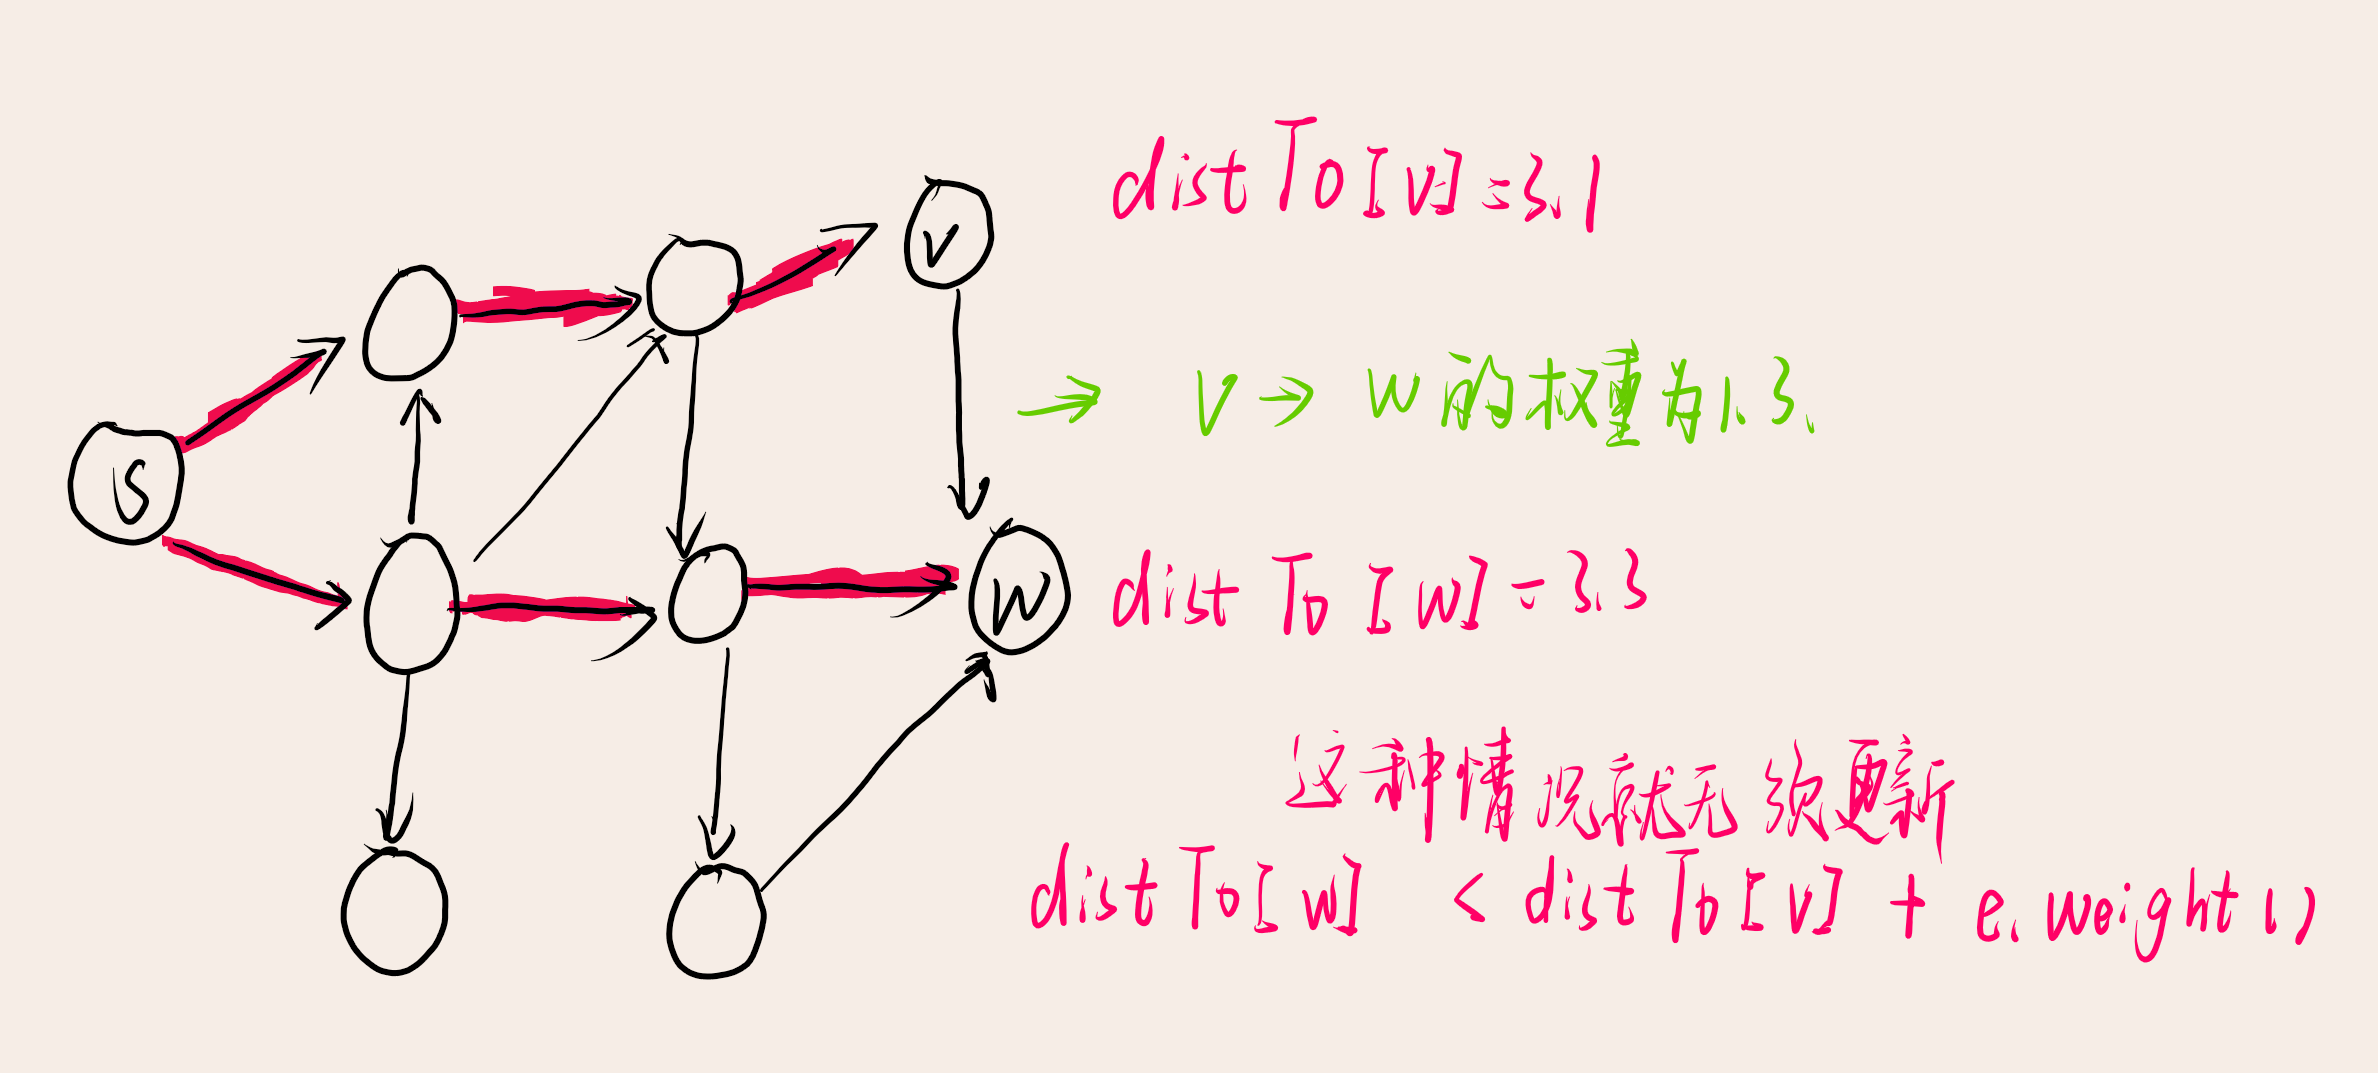 S
V
W
distTo[V]=3.1
→ V → W的权重为1.3.
distTo[W]=3.3
这种情况就无须更新
distTo[W] < distTo[V] + e.weight()